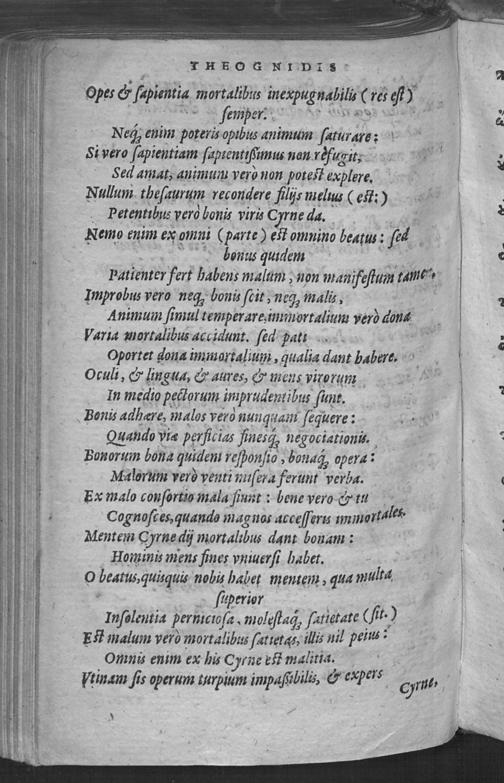 THEOGNIDIS
Opes & sapientia mortalibus inexpugnabilis (res est)
semper.
Neq; enim poteris opibus animum saturare:
Si vero sapientiam sapientißimus non refugit,
Sed amat, animum verò non potest explere.
Nullum thesaurum recondere filijs melius (est:)
Petentibus verò bonis viris Cyrne da.
Nemo enim ex omni (parte) est omnino beatus: sed
bonus quidem
Patienter fert habens malum, non manifestum tamen.
Improbus vero neq; bonis scit, neq; malis,
Animum simul temperare, immortalium verò dona
Varia mortalibus accidunt. sed pati
Oportet dona immortalium, qualia dant habere.
Oculi, & lingua, & aures, & mens virorum
In medio pectorum imprudentibus sunt.
Bonis adhære, malos verò nunquam sequere:
Quando viæ perficias finesq; negociationis.
Bonorum bona quidem responsio, bonaq; opera:
Malorum verò venti misera ferunt verba.
Ex malo consortio mala fiunt: bene vero & tu
Cognosces, quando magnos accesseris immortales.
Mentem Cyrne dij mortalibus dant bonam:
Hominis mens fines vniuersi habet.
O beatus, quisquis nobis habet mentem, qua multa
superior
Insolentia perniciosa, molestaq; satietate (sit.)
Est malum verò mortalibus satietas, illis nil peius:
Omnis enim ex his Cyrne est malitia.
Vtinam sis operum turpium impaßibilis, & expers
Cyrne,